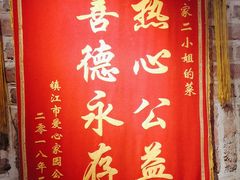 家二小姐的菜
热心公益
善德永存
镇江市爱心家园公
二零一八年